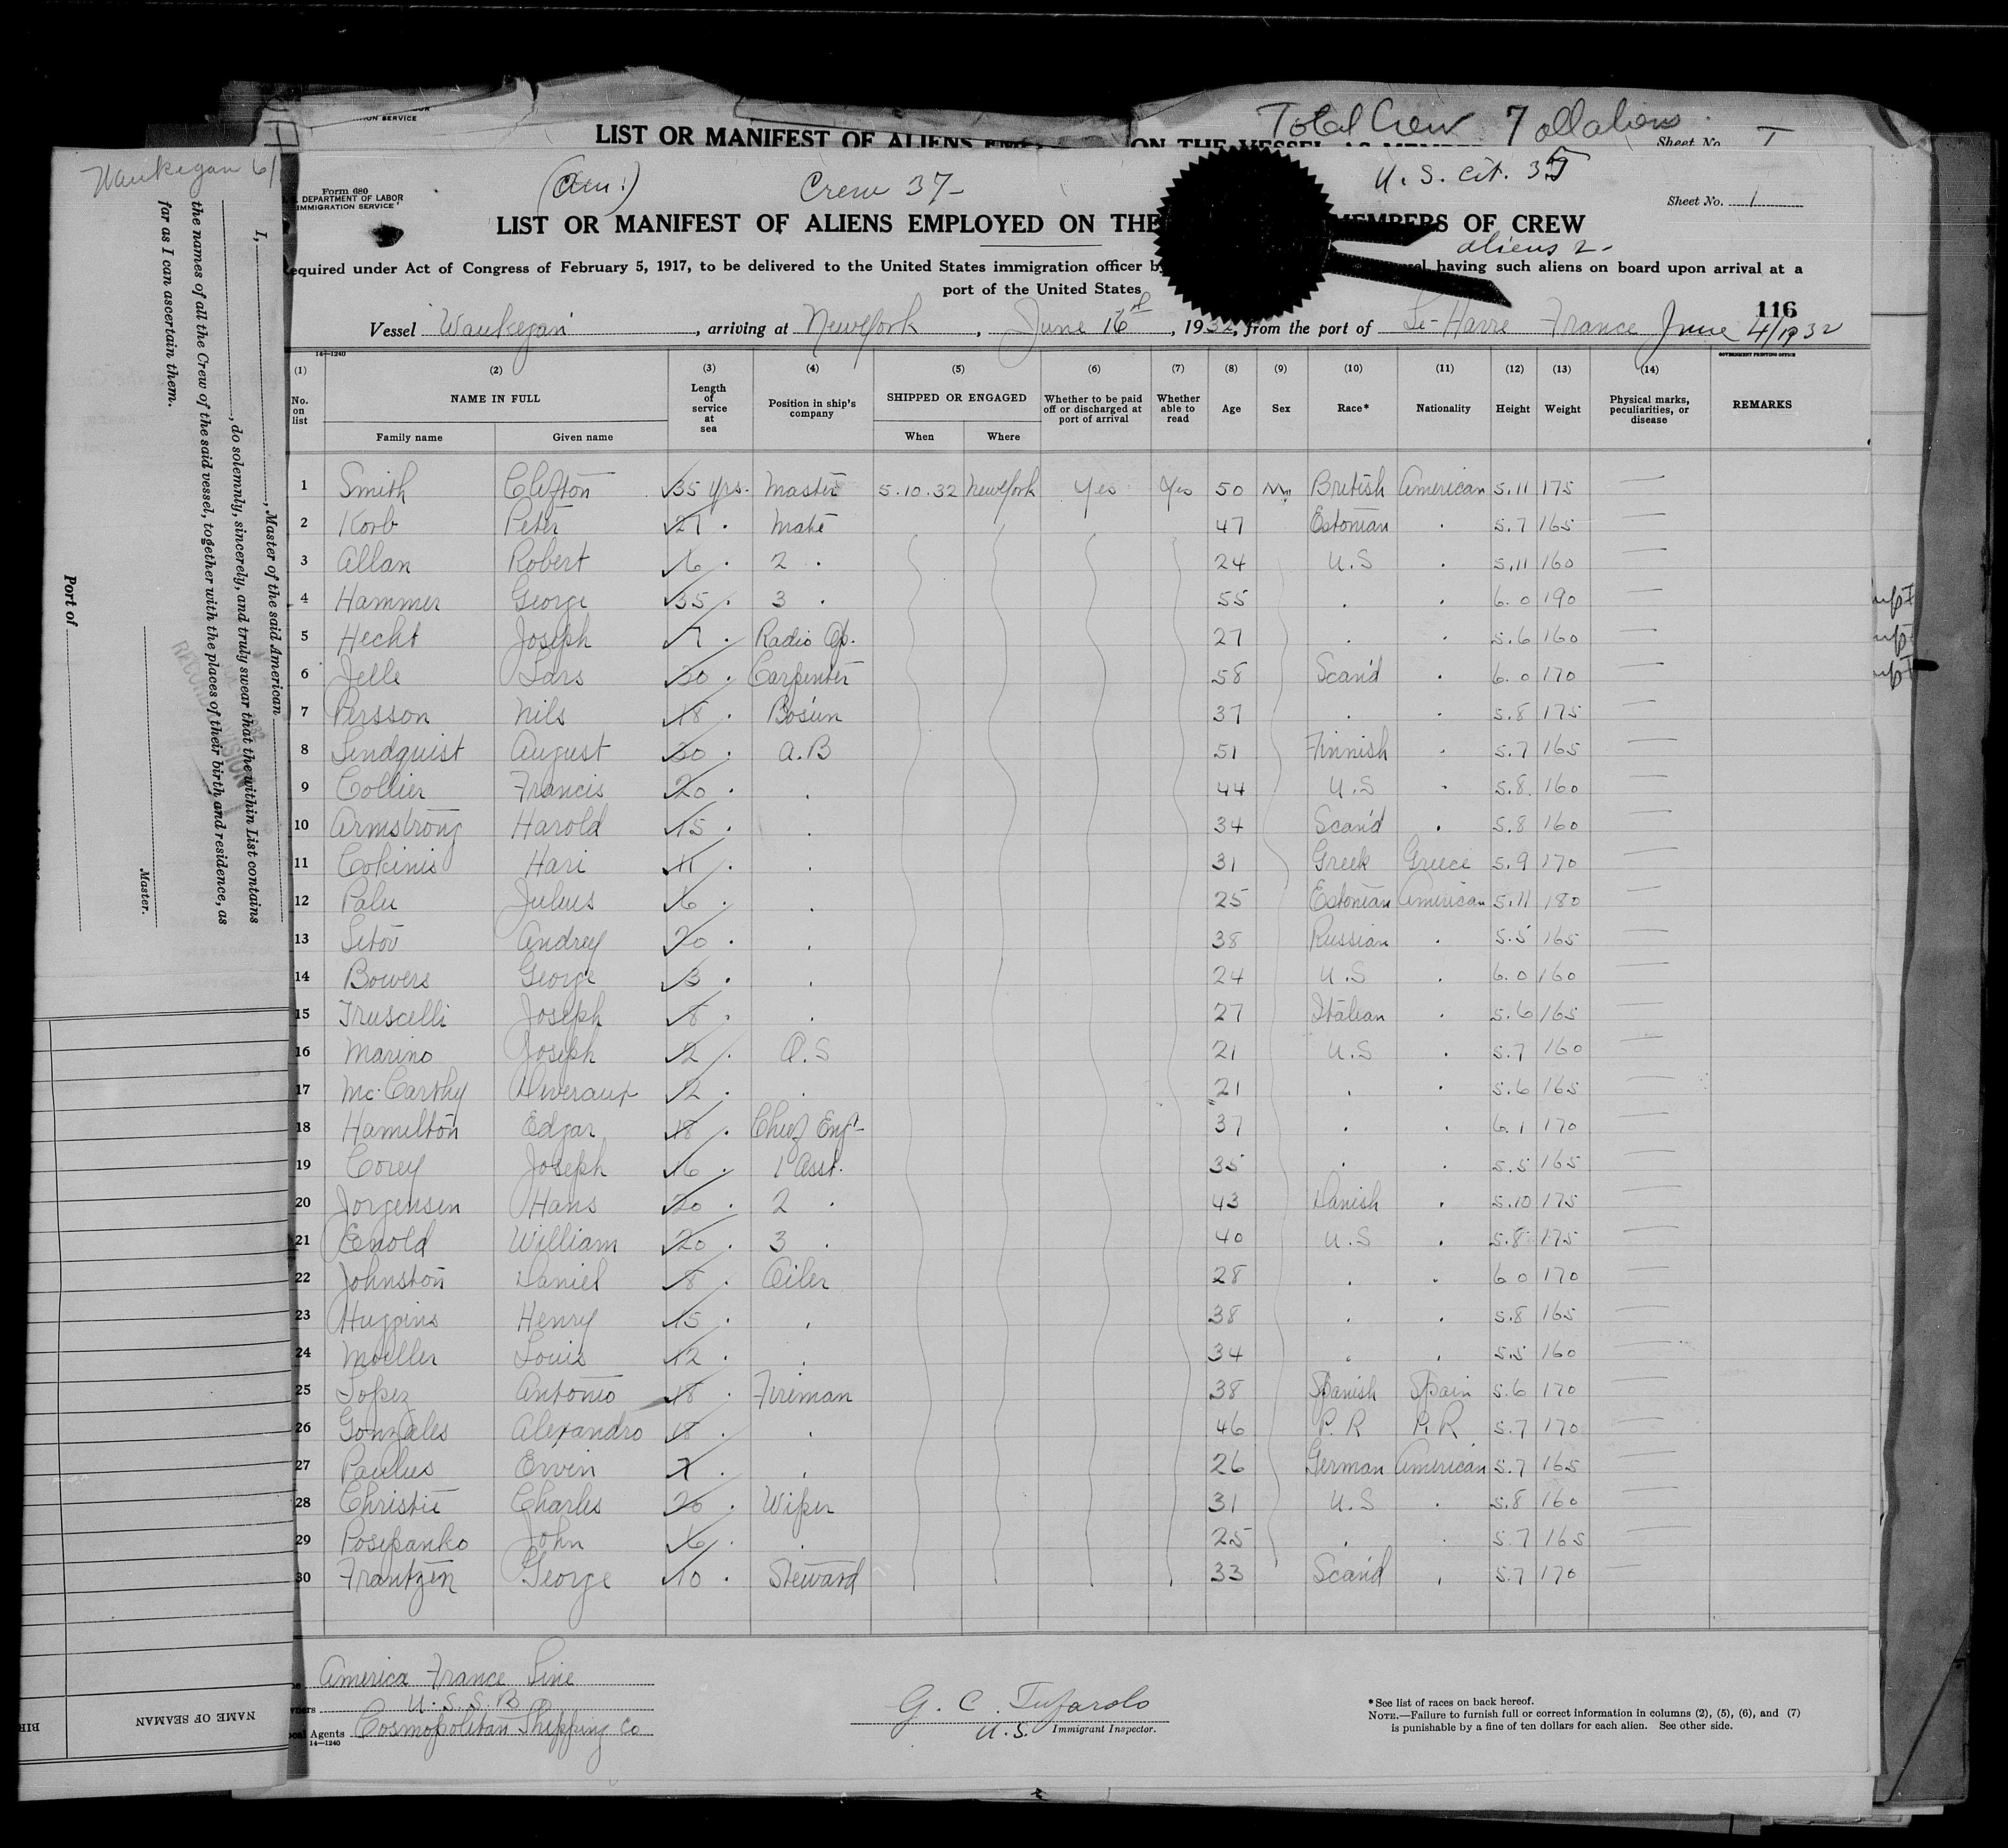 ION SERVICE
Total Crew 7 all aliens
LIST OR MANIFEST OF ALIENS EMP ON THE VESSEL AS MEMB
Sheet No. 1
Waukegan 6/
Form 680
DEPARTMENT OF LABOR
IMMIGRATION SERVICE
Crew 37-
U. S. cit. 35
Sheet No. 1
LIST OR MANIFEST OF ALIENS EMPLOYED ON THE MEMBERS OF CREW
aliens 2-
equired under Act of Congress of February 5, 1917, to be delivered to the United States immigration officer by having such aliens on board upon arrival at a
port of the United States
116
Vessel Waukegan, arriving at New York, June 16th, 1932, from the port of Le-Havre France June 4/1932
14—1240
GOVERNMENT PRINTING OFFICE
(1) (2) (3) (4) (5) (6) (7) (8) (9) (10) (11) (12) (13) (14)
No. on list NAME IN FULL Length of service at sea Position in ship's company SHIPPED OR ENGAGED Whether to be paid off or discharged at port of arrival Whether able to read Age Sex Race* Nationality Height Weight Physical marks, peculiarities, or disease REMARKS
Family name Given name When Where
1 Smith Clifton 35 yrs. Master 5.10.32 New York Yes Yes 50 M British American 5.11 175 —
2 Korb Peter 27 . Mate 47 Estonian . 5.7 165 —
3 Allan Robert 6 . 2 . 24 U.S . 5.11 160 —
4 Hammer George 35 . 3 . 55 . . 6.0 190 —
5 Hecht Joseph 7 . Radio Op. 27 . . 5.6 160 —
6 Jelle Lars 30 . Carpenter 58 Scan'd . 6.0 170 —
7 Persson Nils 18 . Bosun 37 . . 5.8 175 —
8 Lindquist August 30 . A.B 51 Finnish . 5.7 165 —
9 Collier Francis 20 . . 44 U.S . 5.8. 160 —
10 Armstrong Harold 15 . . 34 Scan'd . 5.8 160 —
11 Cokinis Hari 11 . . 31 Greek Greece 5.9 170 —
12 Palu Julius 6 . . 25 Estonian American 5.11 180 —
13 Sitov Andrey 20 . . 38 Russian . 5.5 165 —
14 Bowers George 3 . . 24 U.S . 6.0 160 —
15 Truscelli Joseph 8 . . 27 Italian . 5.6 165 —
16 Marino Joseph 2 . O.S 21 U.S . 5.7 160 —
17 McCarthy Deveraux 2 . . 21 . . 5.6 165 —
18 Hamilton Edgar 18 . Chief Eng 37 . . 6.1 170 —
19 Corey Joseph 16 . 1 Asst. 35 . . 5.5 165 —
20 Jorgensen Hans 20 . 2 . 43 Danish . 5.10 175 —
21 Enold William 20 . 3 . 40 U.S . 5.8 175 —
22 Johnston Daniel 8 . Oiler 28 . . 6 0 170 —
23 Huggins Henry 15 . . 38 . . 5.8 165 —
24 Moeller Louis 12 . . 34 . . 5.5 160 —
25 Lopez Antonio 18 . Fireman 38 Spanish Spain 5.6 170 —
26 Gonzales Alexandro 18 . . 46 P. R P. R 5.7 170 —
27 Paulus Ervin 7 . . 26 German American 5.7 165 —
28 Christie Charles 20 . Wiper 31 U.S . 5.8 160 —
29 Posipanko John 6 . . 25 . . 5.7 165 —
30 Frantzen George 10 . Steward 33 Scan'd . 5.7 170 —
America France Line
wners U.S.S.B
ocal Agents Cosmopolitan Shipping Co
14—1240
G. C. Tufarolo
U.S. Immigrant Inspector.
*See list of races on back hereof.
NOTE.—Failure to furnish full or correct information in columns (2), (5), (6), and (7)
is punishable by a fine of ten dollars for each alien. See other side.
I, , Master of the said American
, do solemnly, sincerely, and truly swear that the within List contains
the names of all the Crew of the said vessel, together with the places of their birth and residence, as
far as I can ascertain them.
Master.
Port of
NAME OF SEAMAN
BIR